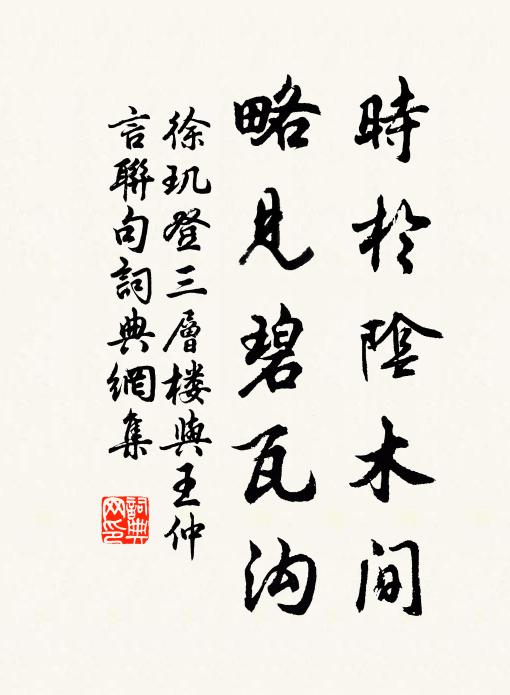 時於陰木间
略見碧瓦沟
徐玑登三層楼與王仲
言聯句詞典網集
詞典网印